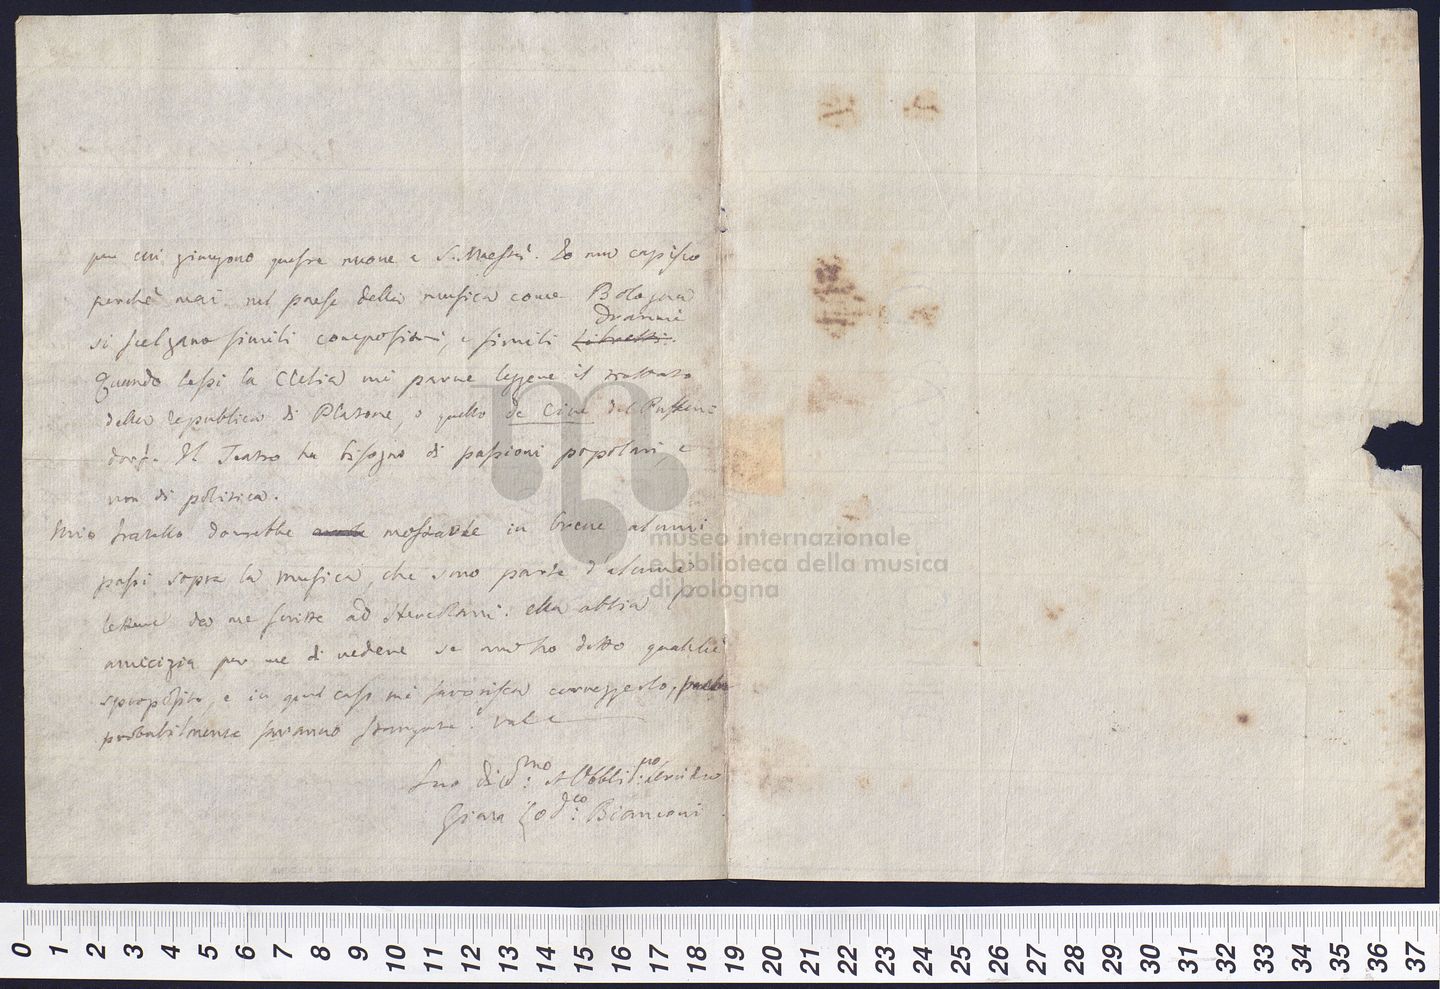 per cui giungono queste nuove a S. Maestà. Io non capisco
perchè mai nel paese della musica come Bologna
si scelgano simili composizioni, e simili Libretti. Drammi
Quando lessi la Clelia mi parve leggere il trattato
della republica di Platone, o quello de Cive del Puffen=
dorf. Il Teatro ha bisogno di passioni popolari, e
non di politica.
Mio fratello dovrebbe mostrarle in breve alcuni
passi sopra la musica, che sono parte d'alcune
lettere da me scritte ad Hercolani. Ella abbia l'
amicizia per me di vedere se mai ho detto qualche
sproposito, e in quel caso mi favorisca correggerlo,
probabilmente saranno stampate. Vale
Suo Obbligmo
Gian Lodco: Bianconi
museo internazionale
e biblioteca della musica
di bologna
0 1 2 3 4 5 6 7 8 9 10 11 12 13 14 15 16 17 18 19 20 21 22 23 24 25 26 27 28 29 30 31 32 33 34 35 36 37